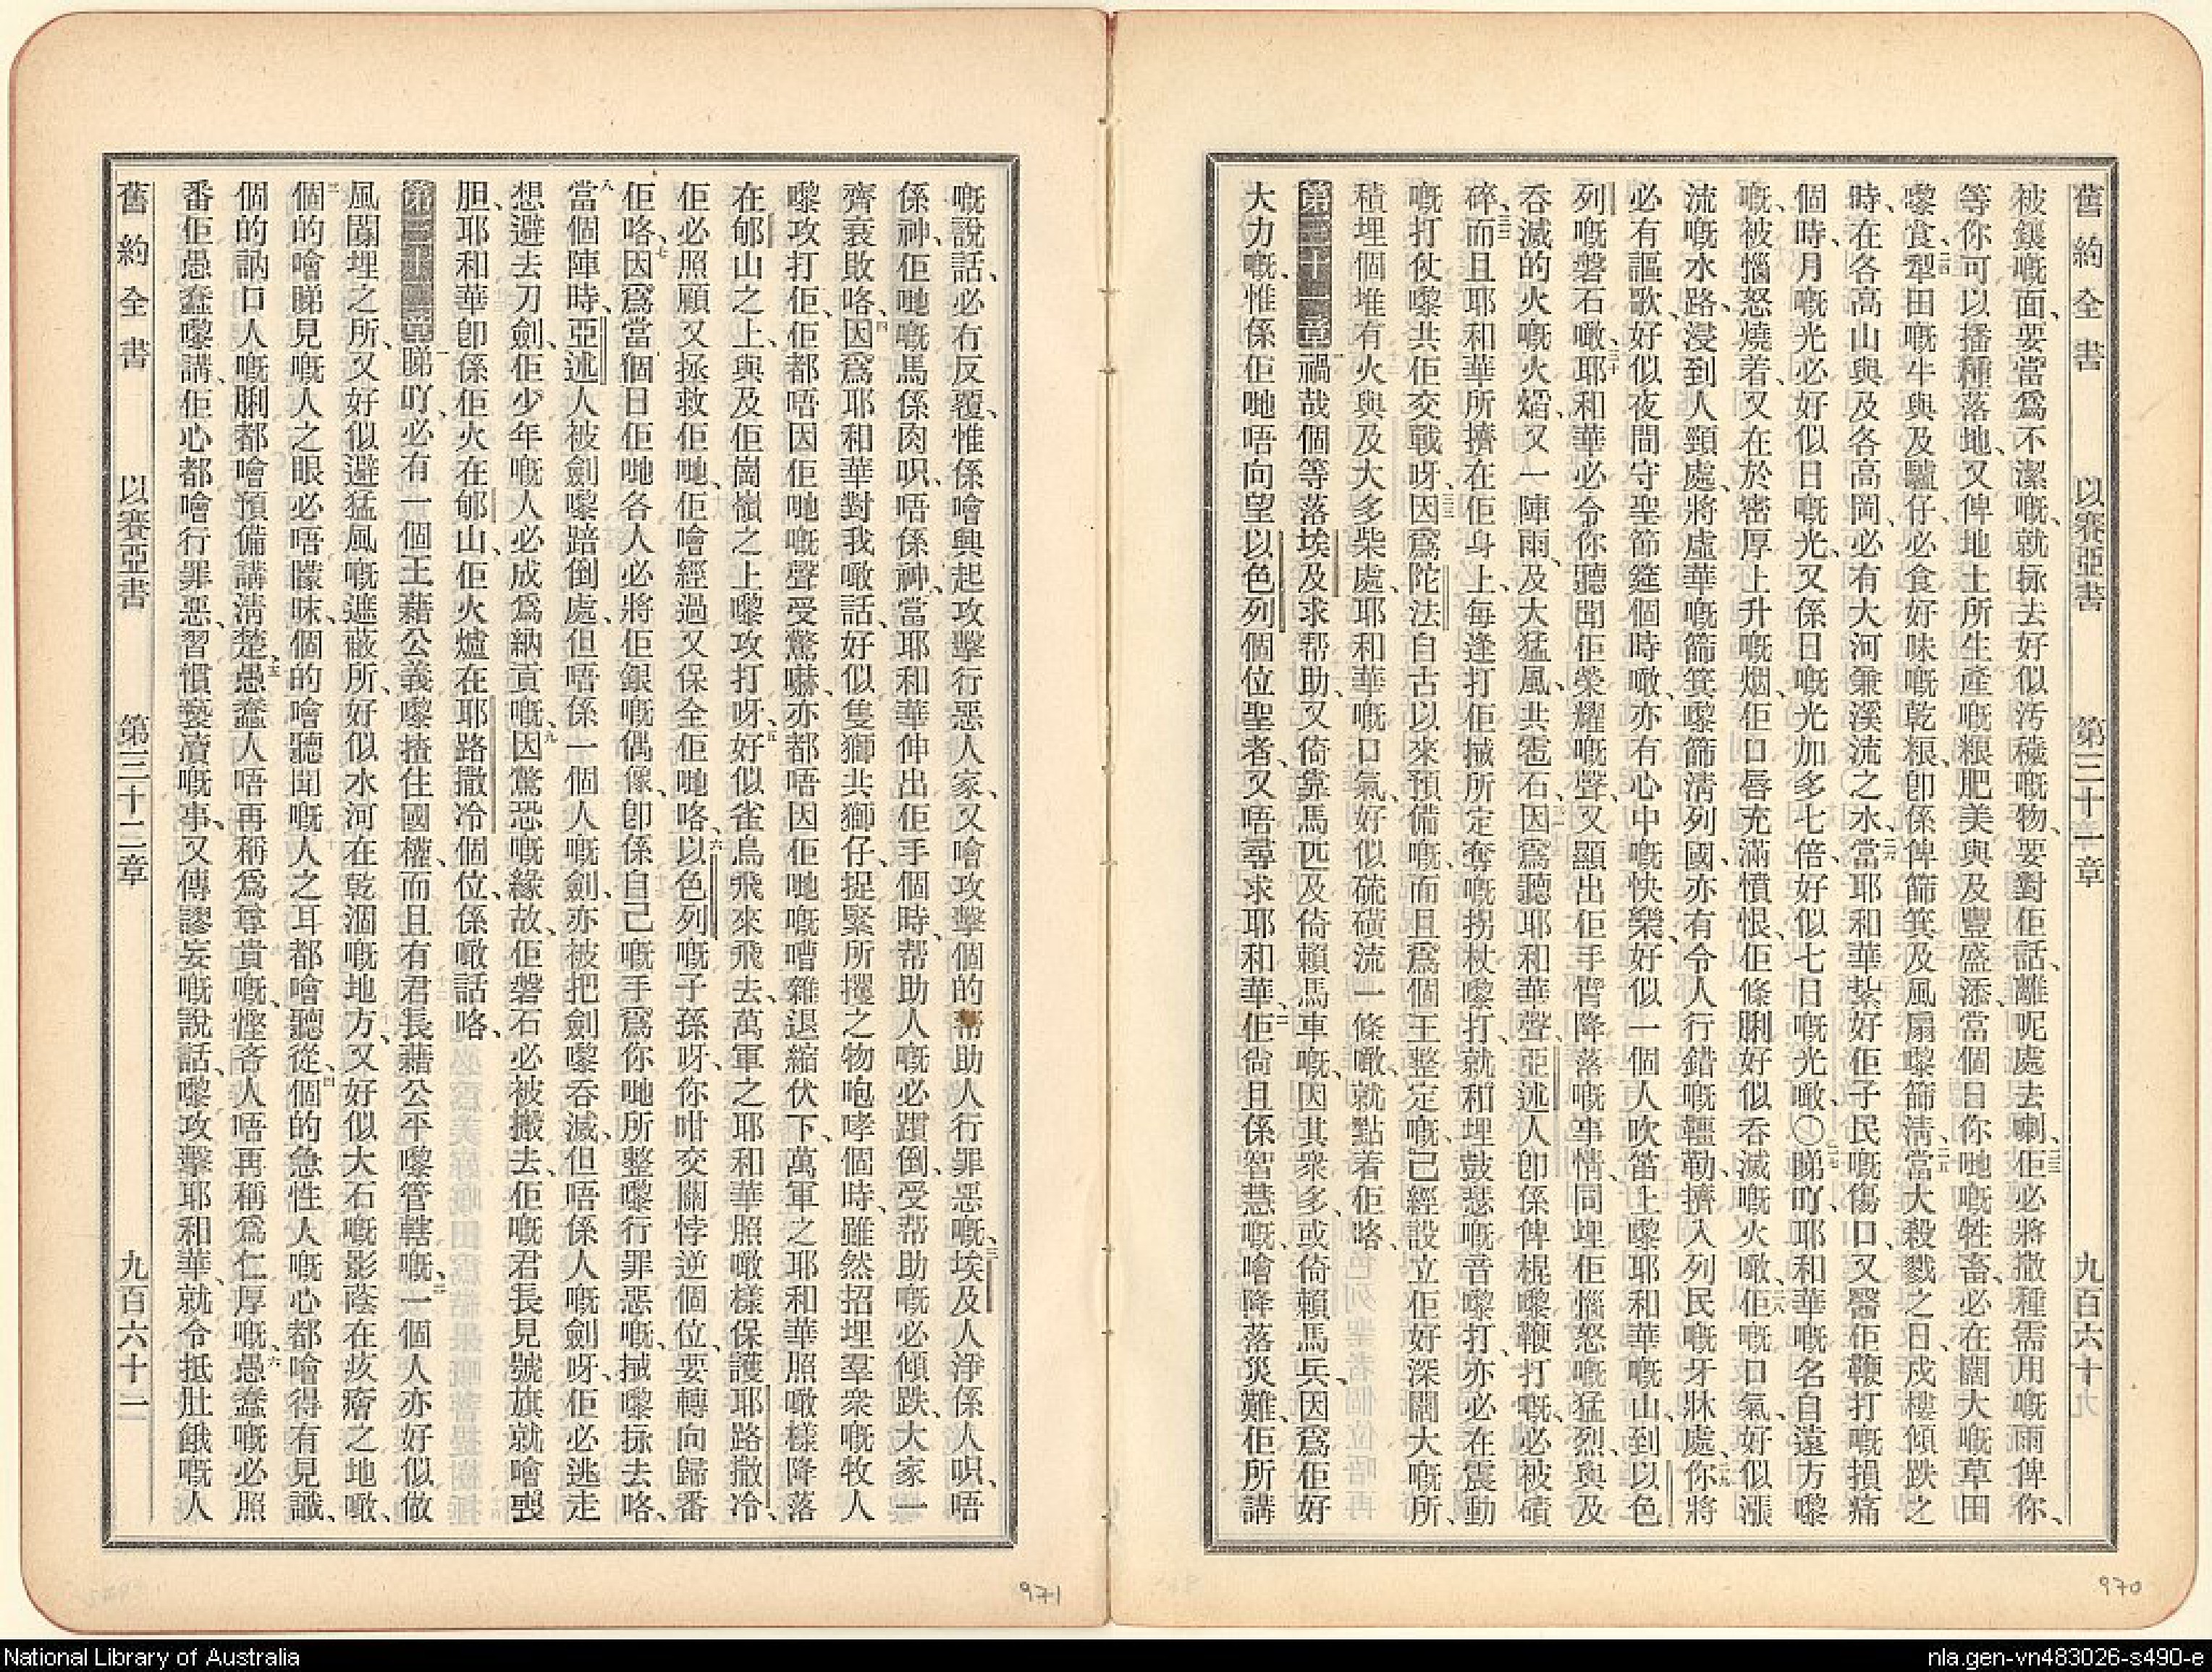 舊約全書 以賽亞書 第三十一章 九百六十
被鑲嘅面、要當爲不潔嘅、就捸去好似汚穢嘅物、要對佢話、離呢處去喇、二三佢必將撒種需用嘅雨俾你、
等你可以播種落地、又俾地土所生產嘅粮肥美與及豐盛添、當個日你哋嘅牲畜、必在闊大嘅草田
嚟食、二四犁田嘅牛與及驢仔、必食好味嘅乾粮、卽係俾篩箕及風扇嚟篩淸、二五當大殺戮之日、戍樓傾跌之
時、在各高山與及各高岡、必有大河兼溪流之水、二六當耶和華紮好佢子民嘅傷口、又醫佢鞭打嘅損痛
個時、月嘅光必好似日嘅光、又係日嘅光加多七倍、好似七日嘅光噉、〇二七睇吖、耶和華嘅名自遠方嚟
嘅、被惱怒燒着、又在於密厚上升嘅烟、佢口唇充滿憤恨、佢條脷好似吞滅嘅火噉、二八佢嘅口氣、好似漲
流嘅水路、浸到人頸處、將虛華嘅篩箕、嚟篩淸列國、亦有令人行錯嘅韁勒、擠入列民嘅牙牀處、二九你將
必有謳歌、好似夜間守聖節筵個時噉、亦有心中嘅快樂、好似一個人吹笛上嚟耶和華嘅山、到以色
列嘅磐石噉、三十耶和華必令你聽聞佢榮耀嘅聲、又顯出佢手臂降落嘅事情、同埋佢惱怒嘅猛烈、與及
吞滅的火嘅火熖、又一陣雨、及大猛風、共雹石、因爲聽耶和華聲、亞述人卽係俾棍嚟鞭打嘅、必被磧
碎、三二而且耶和華所擠在佢身上、每逢打佢搣所定奪嘅拐杖嚟打、就和埋鼓瑟嘅音嚟打、亦必在震動
嘅打仗嚟共佢交戰呀、三三因爲陀法自古以來預備嘅、而且爲個王整定嘅、已經設立佢好深闊大嘅所、
積埋個堆有火與及大多柴處、耶和華嘅口氣、好似硫磺流一條噉、就點着佢咯、
第三十一章 一禍哉個等落埃及求帮助、又倚靠馬匹及倚賴馬車嘅、因其衆多、或倚賴馬兵、因爲佢好
大力嘅、惟係佢哋唔向望以色列個位聖者、又唔尋求耶和華、二佢尙且係智慧嘅、噲降落災難、佢所講
嘅說話、必有反覆、惟係噲興起攻擊行惡人家、又噲攻擊個的帮助人行罪惡嘅、三埃及人淨係人呮、唔
係神、佢哋嘅馬係肉呮、唔係神、當耶和華伸出佢手個時、帮助人嘅必躓倒、受帮助嘅必傾跌、大家一
齊衰敗咯、四因爲耶和華對我噉話、好似隻獅共獅仔、捉緊所攫之物咆哮個時、雖然招埋羣衆嘅牧人
嚟攻打佢、佢都唔因佢哋嘅聲受驚嚇、亦都唔因佢哋嘅嘈雜退縮伏下、萬軍之耶和華照噉樣降落
在郇山之上、與及佢崗嶺之上嚟攻打呀、五好似雀鳥飛來飛去、萬軍之耶和華照噉樣保護耶路撒冷、
佢必照顧又拯救佢哋、佢噲經過又保全佢哋咯、六以色列嘅子孫呀、你咁交關悖逆個位、要轉向歸番
佢咯、七因爲當個日佢哋各人必將佢銀嘅偶像、卽係自己嘅手爲你哋所整嚟行罪惡嘅、搣嚟捸去咯、
八當個陣時、亞述人被劍嚟踣倒處、但唔係一個人嘅劍、亦被把劍嚟吞滅、但唔係人嘅劍呀、佢必逃走
想避去刀劍、佢少年嘅人必成爲納貢嘅、九因驚恐嘅緣故、佢磐石必被搬去、佢嘅君長見號旗就噲喪
胆、耶和華卽係佢火在郇山、佢火爐在耶路撒冷個位、係噉話咯、
第三十二章 一睇吖、必有一個王藉公義嚟揸住國權、而且有君長藉公平嚟管轄嘅、二一個人亦好似做
風闊埋之所、又好似避猛風嘅遮蔽所、好似水河在乾涸嘅地方、又好似大石嘅影蔭在疚瘠之地噉、
三個的噲睇見嘅人之眼必唔矇昧、個的噲聽聞嘅人之耳都噲聽從、四個的急性人嘅心都噲得有見識、
個的訥口人嘅脷都噲預備講淸楚、五愚蠢人唔再稱爲尊貴嘅、慳吝人唔再稱爲仁厚嘅、六愚蠢嘅必照
番佢愚蠢嚟講、佢心都噲行罪惡、習慣褻瀆嘅事、又傳謬妄嘅說話、嚟攻擊耶和華、就令抵肚餓嘅人
舊約全書 以賽亞書 第三十二章 九百六十一
971
970
National Library of Australia
nla.gen-vn483026-s490-e